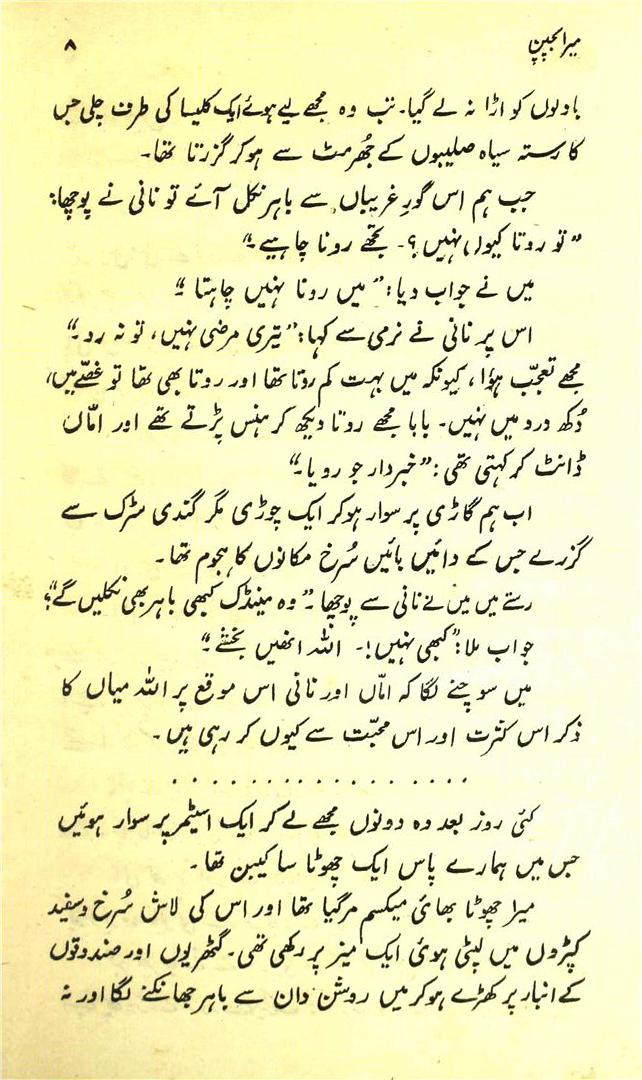 میرا بچپن ۸
بادلوں کو اڑا نہ لے گیا۔ تب وہ مجھے لیے ہوئے ایک کلیسا کی طرف چلی جس
کا رستہ سیاہ صلیبوں کے جھُرمٹ سے ہو کر گزرتا تھا۔
جب ہم اس گورِ غریباں سے باہر نکل آئے تو نانی نے پوچھا:
”تو روتا کیوں نہیں؟۔ تجھے رونا چاہیے۔“
میں نے جواب دیا: ”میں رونا نہیں چاہتا۔“
اس پر نانی نے نرمی سے کہا: ”تیری مرضی نہیں، تو نہ رو۔“
مجھے تعجّب ہؤا، کیونکہ میں بہت کم روتا تھا اور روتا بھی تھا تو غصّے میں،
دُکھ درد میں نہیں۔ بابا مجھے روتا دیکھ کر ہنس پڑتے تھے اور امّاں
ڈانٹ کر کہتی تھی: ”خبردار جو رویا۔“
اب ہم گاڑی پر سوار ہو کر ایک چوڑی مگر گندی سڑک سے
گزرے جس کے دائیں بائیں سُرخ مکانوں کا ہجوم تھا۔
رستے میں میں نے نانی سے پوچھا۔ ”وہ مینڈک کبھی باہر بھی نکلیں گے؟“
جواب ملا: ”کبھی نہیں!۔ اللہ انھیں بخشے۔“
میں سوچنے لگا کہ امّاں اور نانی اس موقع پر اللہ میاں کا
ذکر اس کثرت اور اس محبّت سے کیوں کر رہی ہیں۔
. . . . . . . . . . . . . . . . .
کئی روز بعد وہ دونوں مجھے لے کر ایک اسٹیمر پر سوار ہوئیں
جس میں ہمارے پاس ایک چھوٹا سا کیبن تھا۔
میرا چھوٹا بھائی میکسم مر گیا تھا اور اس کی لاش سُرخ و سفید
کپڑوں میں لپٹی ہوئی ایک میز پر رکھی تھی۔ گٹھریوں اور صندوقوں
کے انبار پر کھڑے ہو کر میں روشن دان سے باہر جھانکنے لگا اور نہ